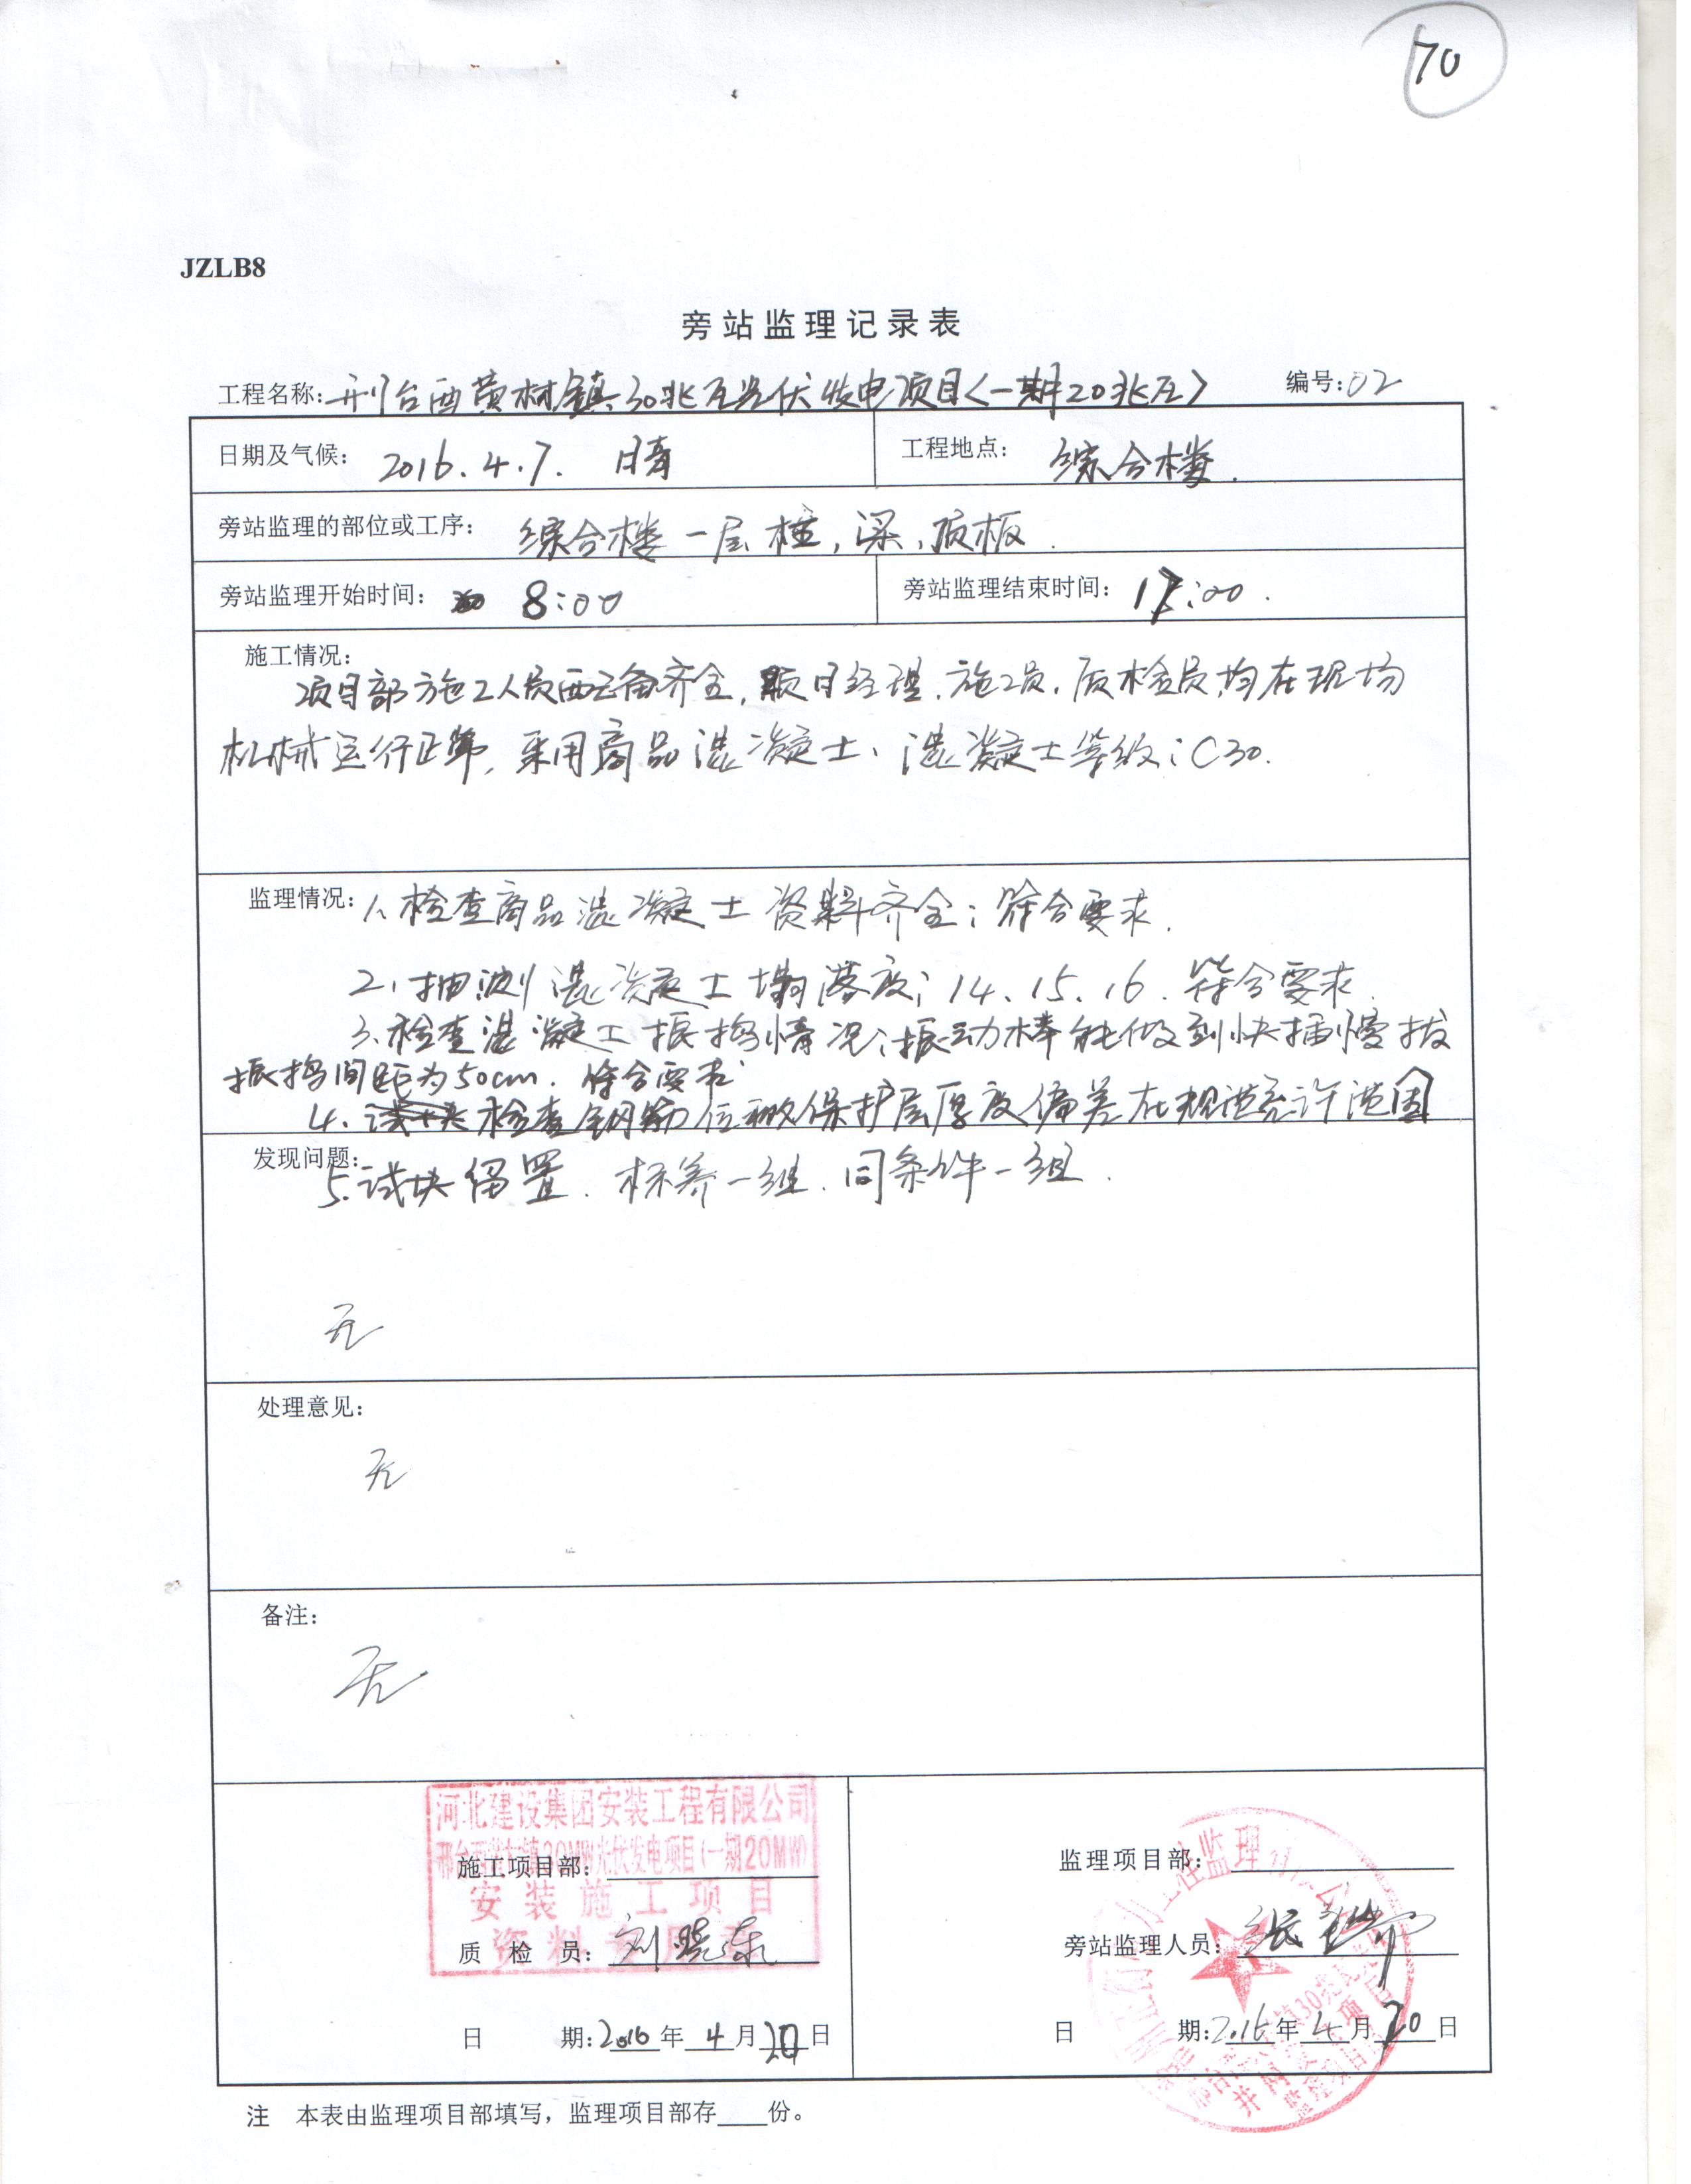 70
JZLB8
旁站监理记录表
工程名称：邢台西黄村镇30兆瓦光伏发电项目<一期20兆瓦> 编号：02
日期及气候： 2016.4.7. 晴 工程地点： 综合楼.
旁站监理的部位或工序： 综合楼一层柱，梁，顶板.
旁站监理开始时间： 8:00 旁站监理结束时间： :00.
施工情况：
项目部施工人员配备齐全，项目经理、施工员、质检员均在现场
机械运行正常，采用商品混凝土、混凝土等级：C30.
监理情况： 1、检查商品混凝土资料齐全；符合要求.
2、抽测混凝土塌落度；14、15、16. 符合要求.
3、检查混凝土振捣情况：振动棒能做到快插慢拔
振捣间距为50cm. 符合要求
4. 检查钢筋位移及保护层厚度偏差在规范允许范围
发现问题：
5.试块留置. 标养一组. 同条件一组.
无
处理意见：
无
备注：
无
河北建设集团安装工程有限公司
邢台西黄村镇30MW光伏发电项目(一期20MW)
施工项目部：
监理项目部：
安装施工项目
资料专用章
质 检 员： 刘晓东
旁站监理人员： 张
日 期：2016年4月20日
日 期：2016年4月20日
注 本表由监理项目部填写，监理项目部存____份。